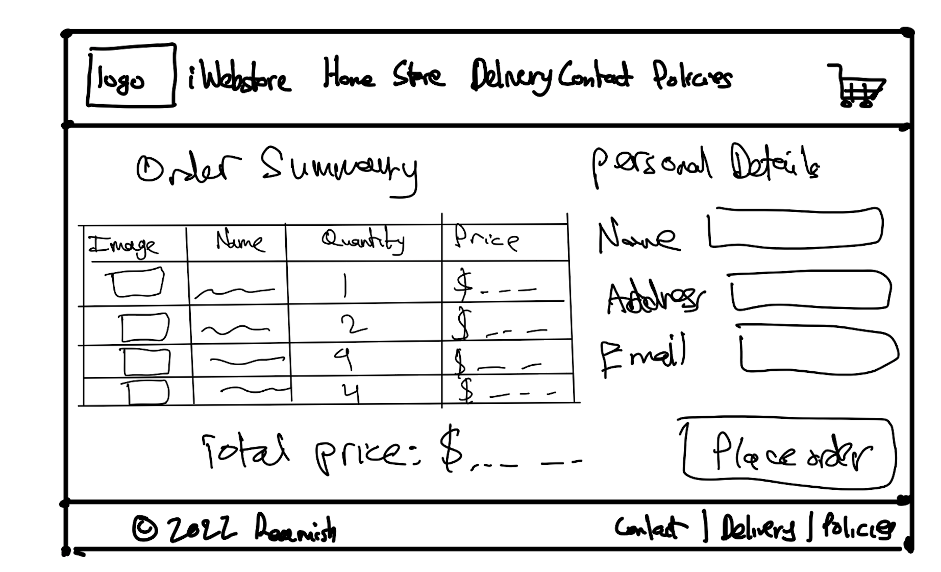 logo iWebstore Home Store Delivery Contact Policies
Order Summary
Image Name Quantity Price
1 $---
2 $---
9 $---
4 $---
Total price: $-----
Personal Details
Name
Address
Email
Place order
© 2022
Contact | Delivery | Policies